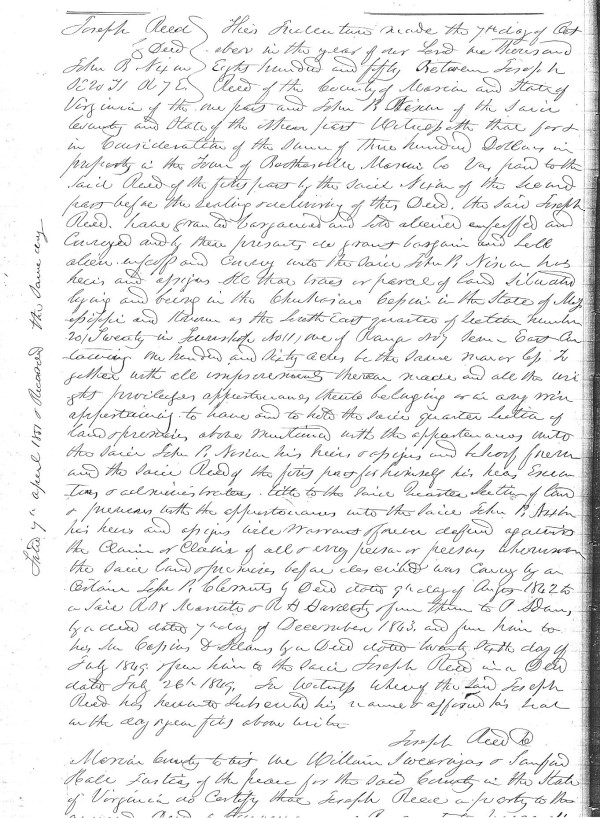 Joseph Reed } This Indenture made the 7th day of Oct
Deed } ober in the year of our Lord one Thousand
John R Nixon } Eight hundred and fifty Between Joseph
SE 20 T11 R 7 E } Reed of the County of Marion and State of
Virginia of the one part and John R Nixon of the said
County and State of the other part Witnesseth that for &
in Consideration of the Sum of Three hundred Dollars in
property in the Town of Boothesville Marion Co Va, paid to the
said Reed of the first part by the said Nixon of the second
part before the sealing & delivering of this Deed. the said Joseph
Reed. have granted bargained and sold aliened enfeoffed and
Conveyed and by these presents do grant bargain and sell
alien enfeoff and Convey unto the said John R. Nixon his
heirs and assigns all that tract or parcel of land situated
lying and being in the Chickasaw Cession in the State of Miss
issippi and Known as the South East quarter of section number
20, Twenty in Township No 11, one of Range No 7 seven East Con
taining One hundred and sixty acres be the same more or less To
gether with all improvements thereon made and all the
right privileges appurtenances thereto belonging or in any wise
appertaining. to have and to hold the said quarter section of
land & premises above mentioned with the appurtenances unto
the said John R. Nixon his heirs & assigns and behoof forever
and the said Reed of the first part for himself his heirs Execu
tors & administrators. title to the said quarter section of land
& premises with the appurtenances unto the said John R. Nixon
his heirs and assigns will Warrant & forever defend against
the Claim or Claims of all & every person or persons whomsoever
the said land & premises before described was Convey by a
Certain John P. Clements by Deed dated 9th day of Augt 1842 to
a said & R H & from them to A Adams
by a deed dated 7th day of December 1843. and from him to
by a Deed dated Twenty Sixth day of
July 1849 & from him to the said Joseph Reed in a Deed
dated July 26th 1849. In Witness Whereof the said Joseph
Reed has hereunto Subscribed his name & affixed his seal
on the day & year first above written
Joseph Reed
Marion County to wit We William Swearingen & Sanford
Hall Justices of the peace for the said County in the State
of Virginia do Certify that Joseph Reed a party to the
Filed 7th april 1851 & Recorded the same day